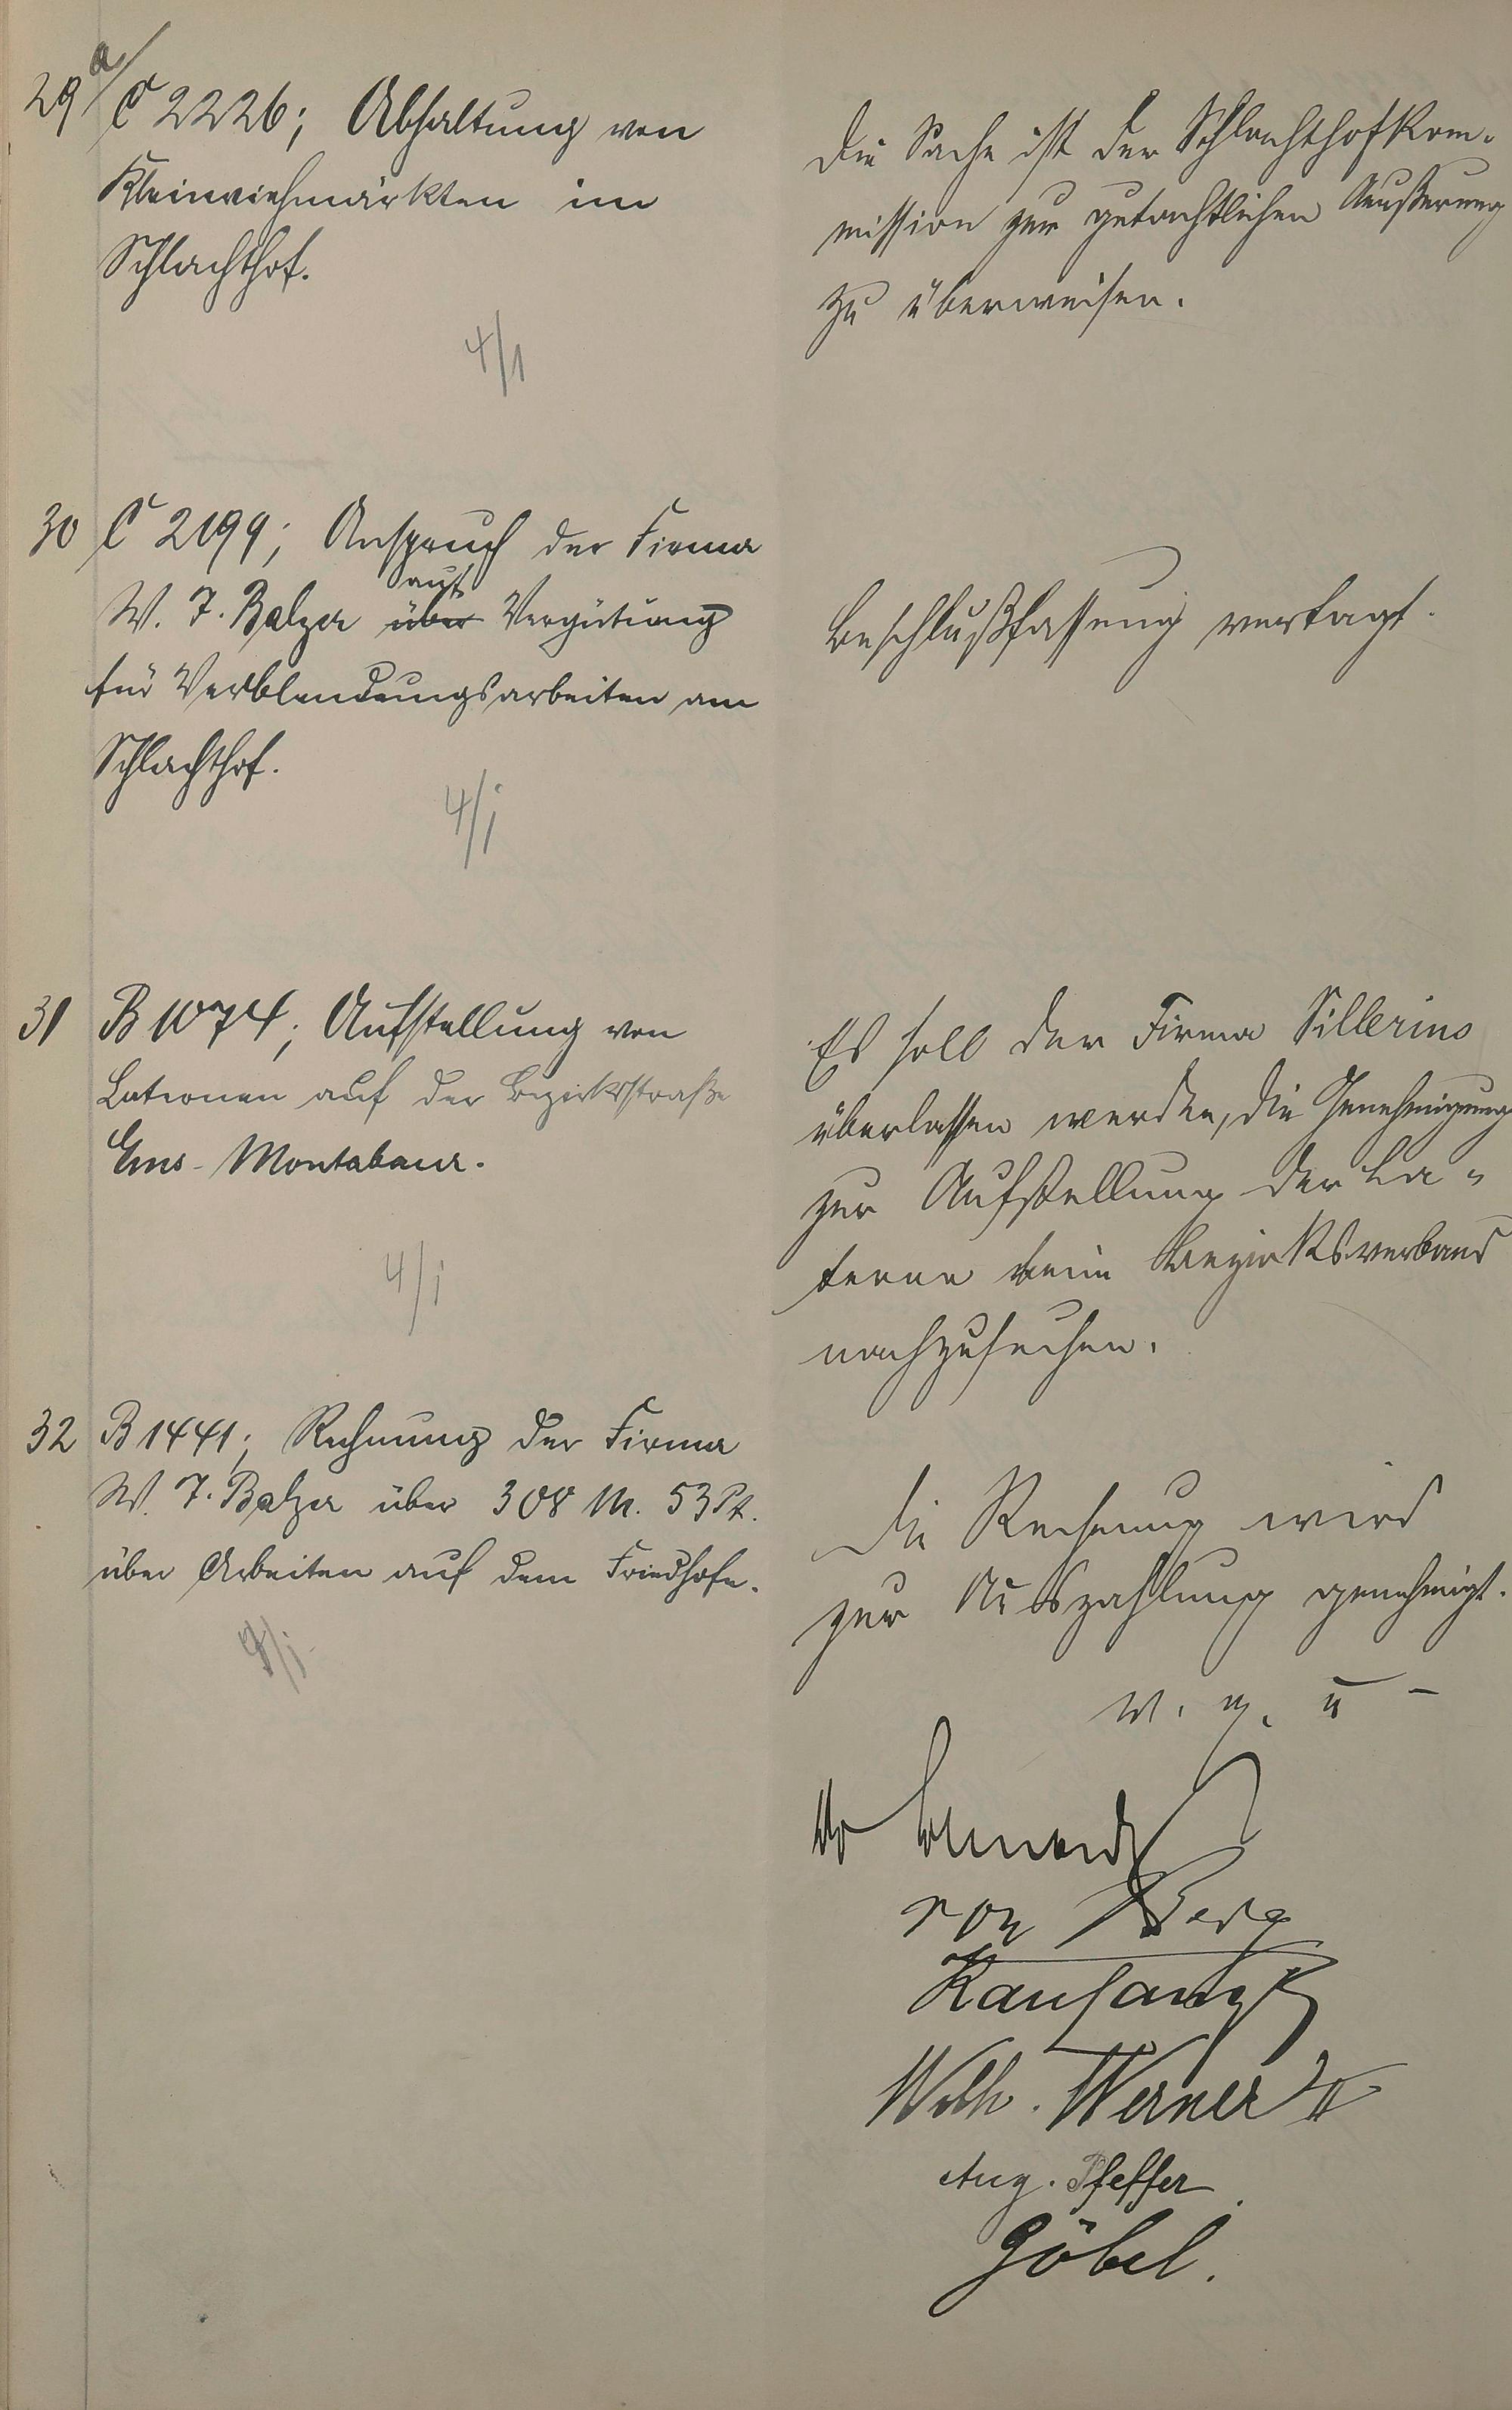 29a/ C 2226; Abhaltung von
Kleinviehmärkten im
Schlachthof.
4/1
Die Sache ist der Schlachthofkom-
mission zur gutachtlichen Äußerung
zu überweisen.
30 C 2199; Anspruch der Firma
auf
W. J. Balzer über Vergütung
für Verblendungsarbeiten am
Schlachthof.
4/1
Beschlußfassung vertagt.
31 B 1074; Aufstellung von
Laternen auf der Bezirksstraße
Ems-Montabaur.
4/1
Es soll der Firma Sillerius
überlassen werden, die Genehmigung
zur Aufstellung der La-
terne beim Bezirksverband
nachzusuchen.
32 B 1441; Rechnung der Firma
W. J. Balzer über 308 M. 53 Pf.
über Arbeiten auf dem Friedhofe.
4/1
Die Rechnung wird
zur Auszahlung genehmigt.
v. g. u -
von Berg
Wilh. Werner II
Aug. Pfeffer
Göbel.